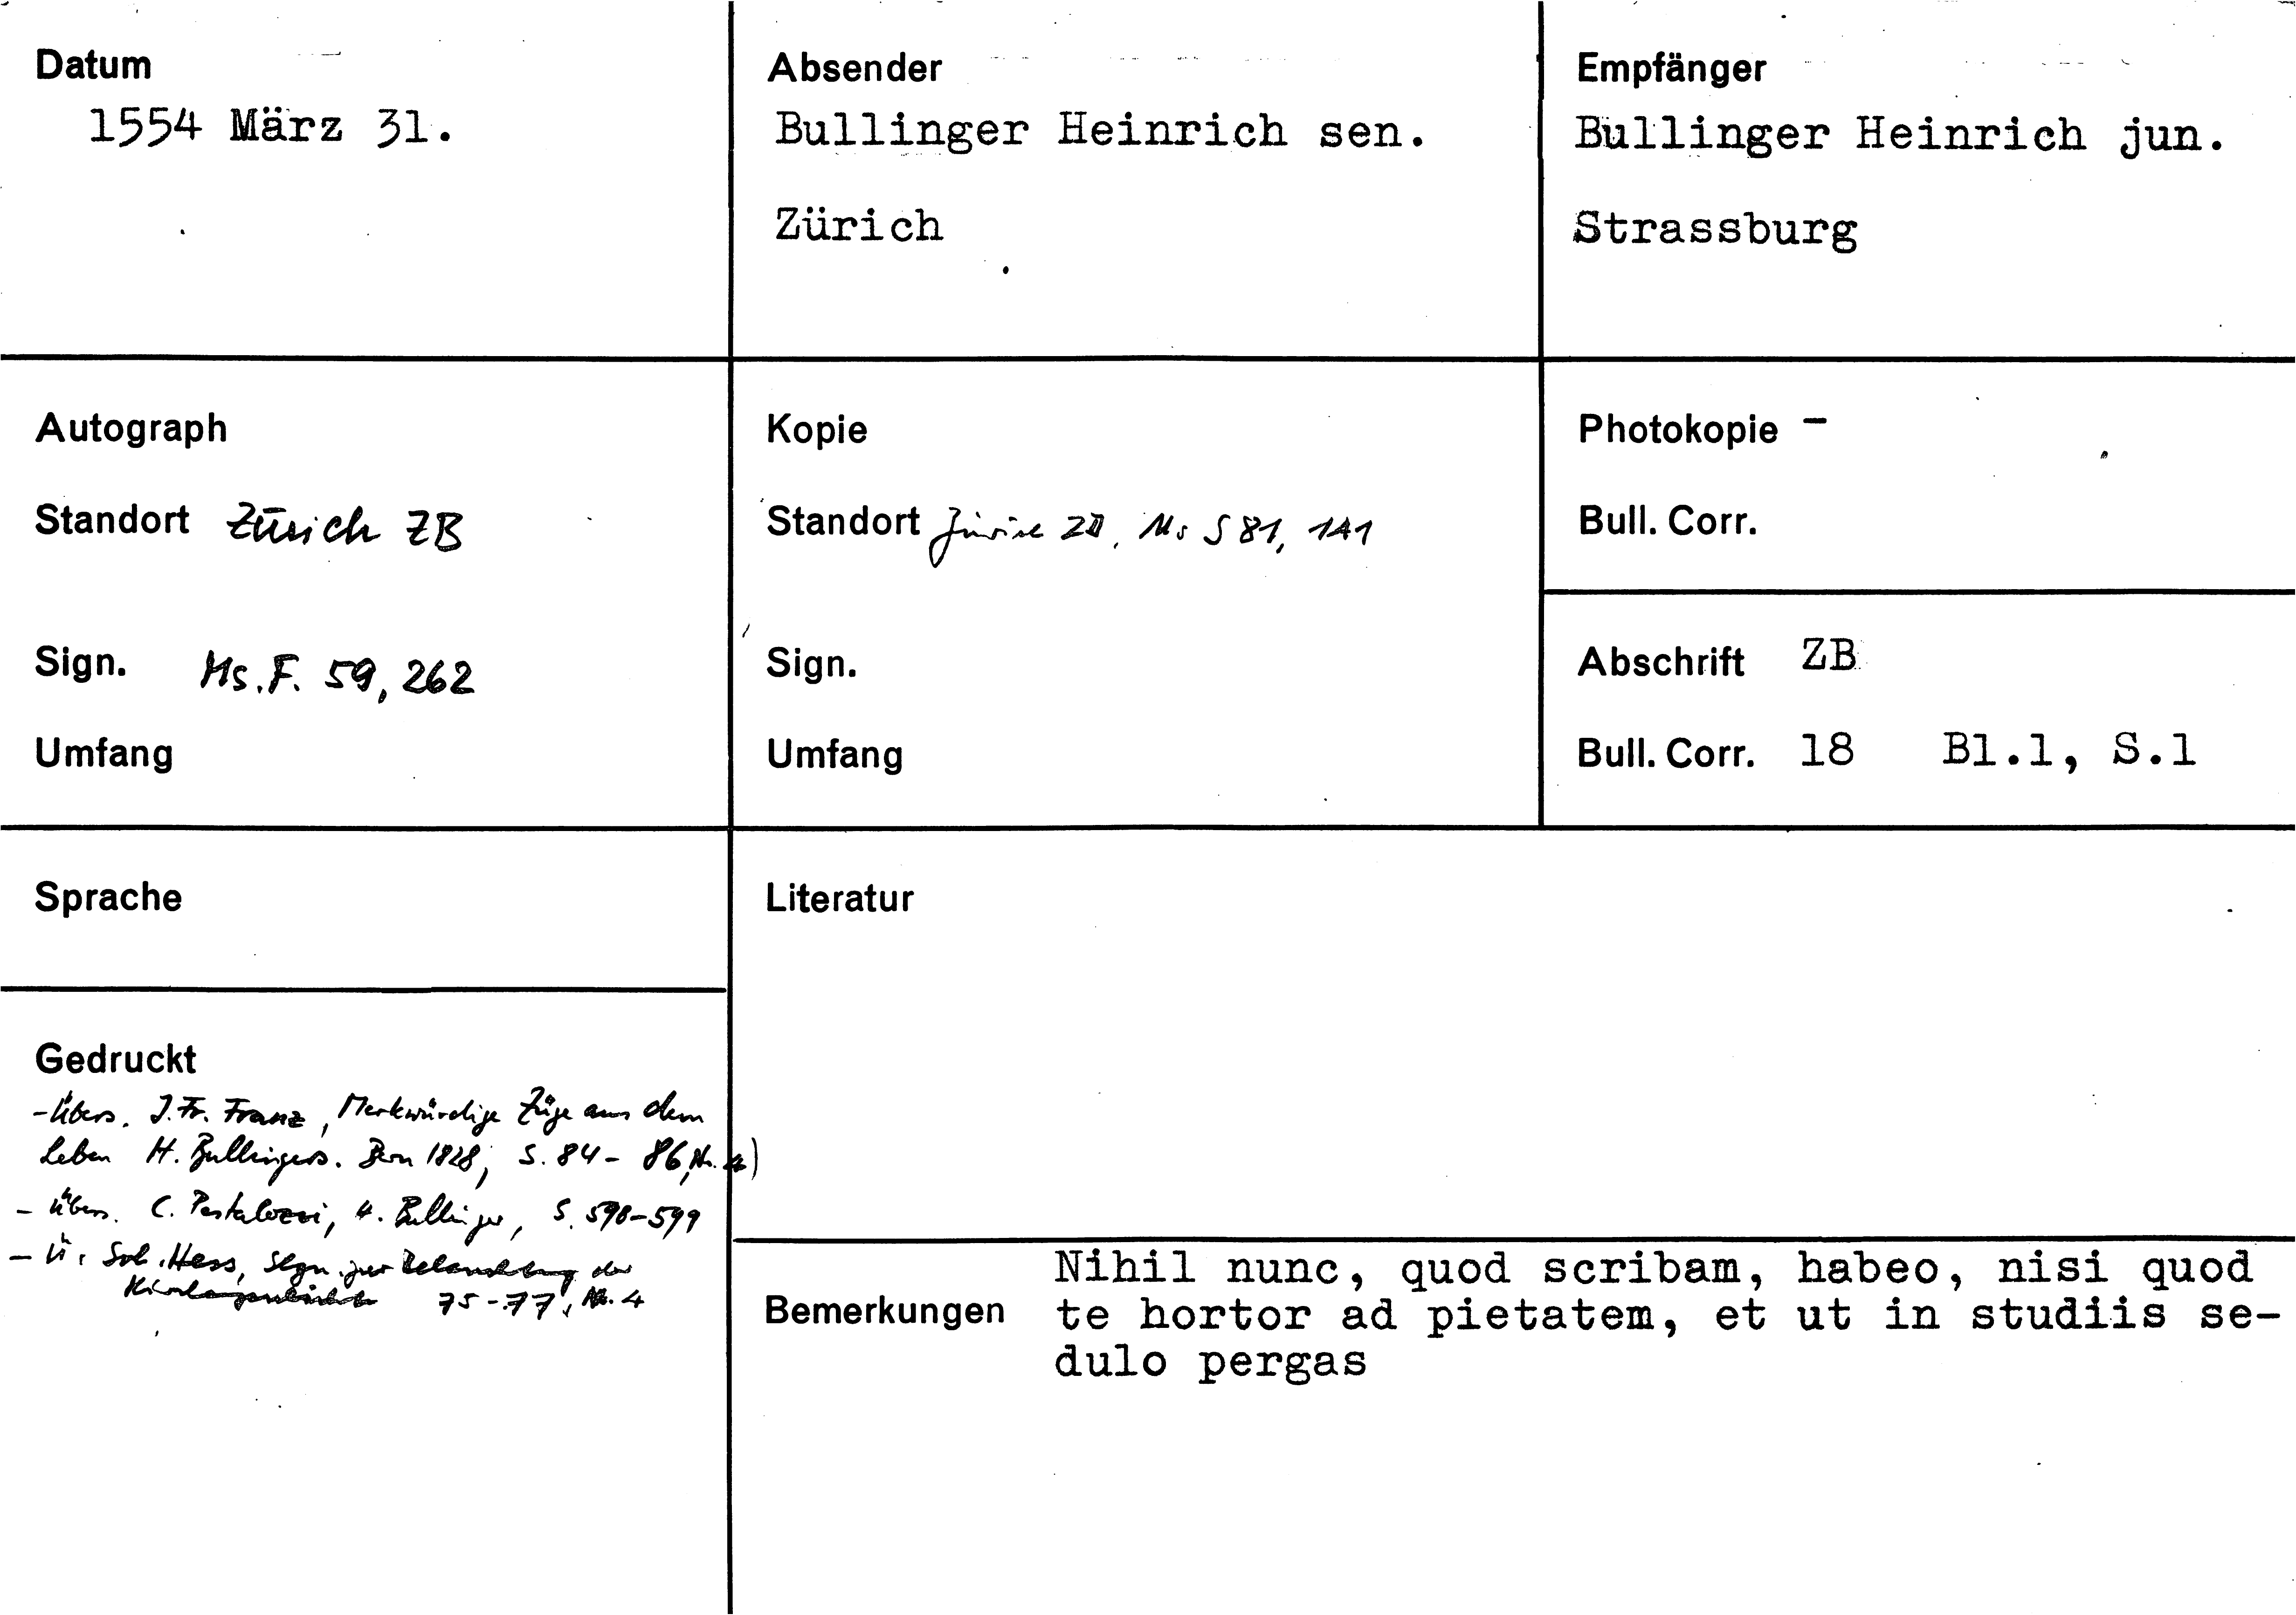 Datum
1554 März 31.
Absender
Bullinger Heinrich sen.
Zürich
Empfänger
Bullinger Heinrich jun.
Strassburg
Autograph
Standort Zürich ZB
Sign. Ms. F. 59, 262
Umfang
Kopie
Standort Zürich ZB, Ms S 81, 141
Sign.
Umfang
Photokopie -
Bull. Corr.
Abschrift ZB
Bull. Corr. 18 Bl.1, S.1
Sprache
Gedruckt
- Übers. J. Fr. Franz, Merkwürdige Züge aus dem
Leben H. Bullingers. Bern 1828, S. 84 - 86, Nr. 4)
- Übers. C. Pestalozzi, H. Bullinger, S. 598-599
- Ü: Sal. Hess, zur der
75-77, Nr. 4
Literatur
Bemerkungen
Nihil nunc, quod scribam, habeo, nisi quod
te hortor ad pietatem, et ut in studiis se-
dulo pergas